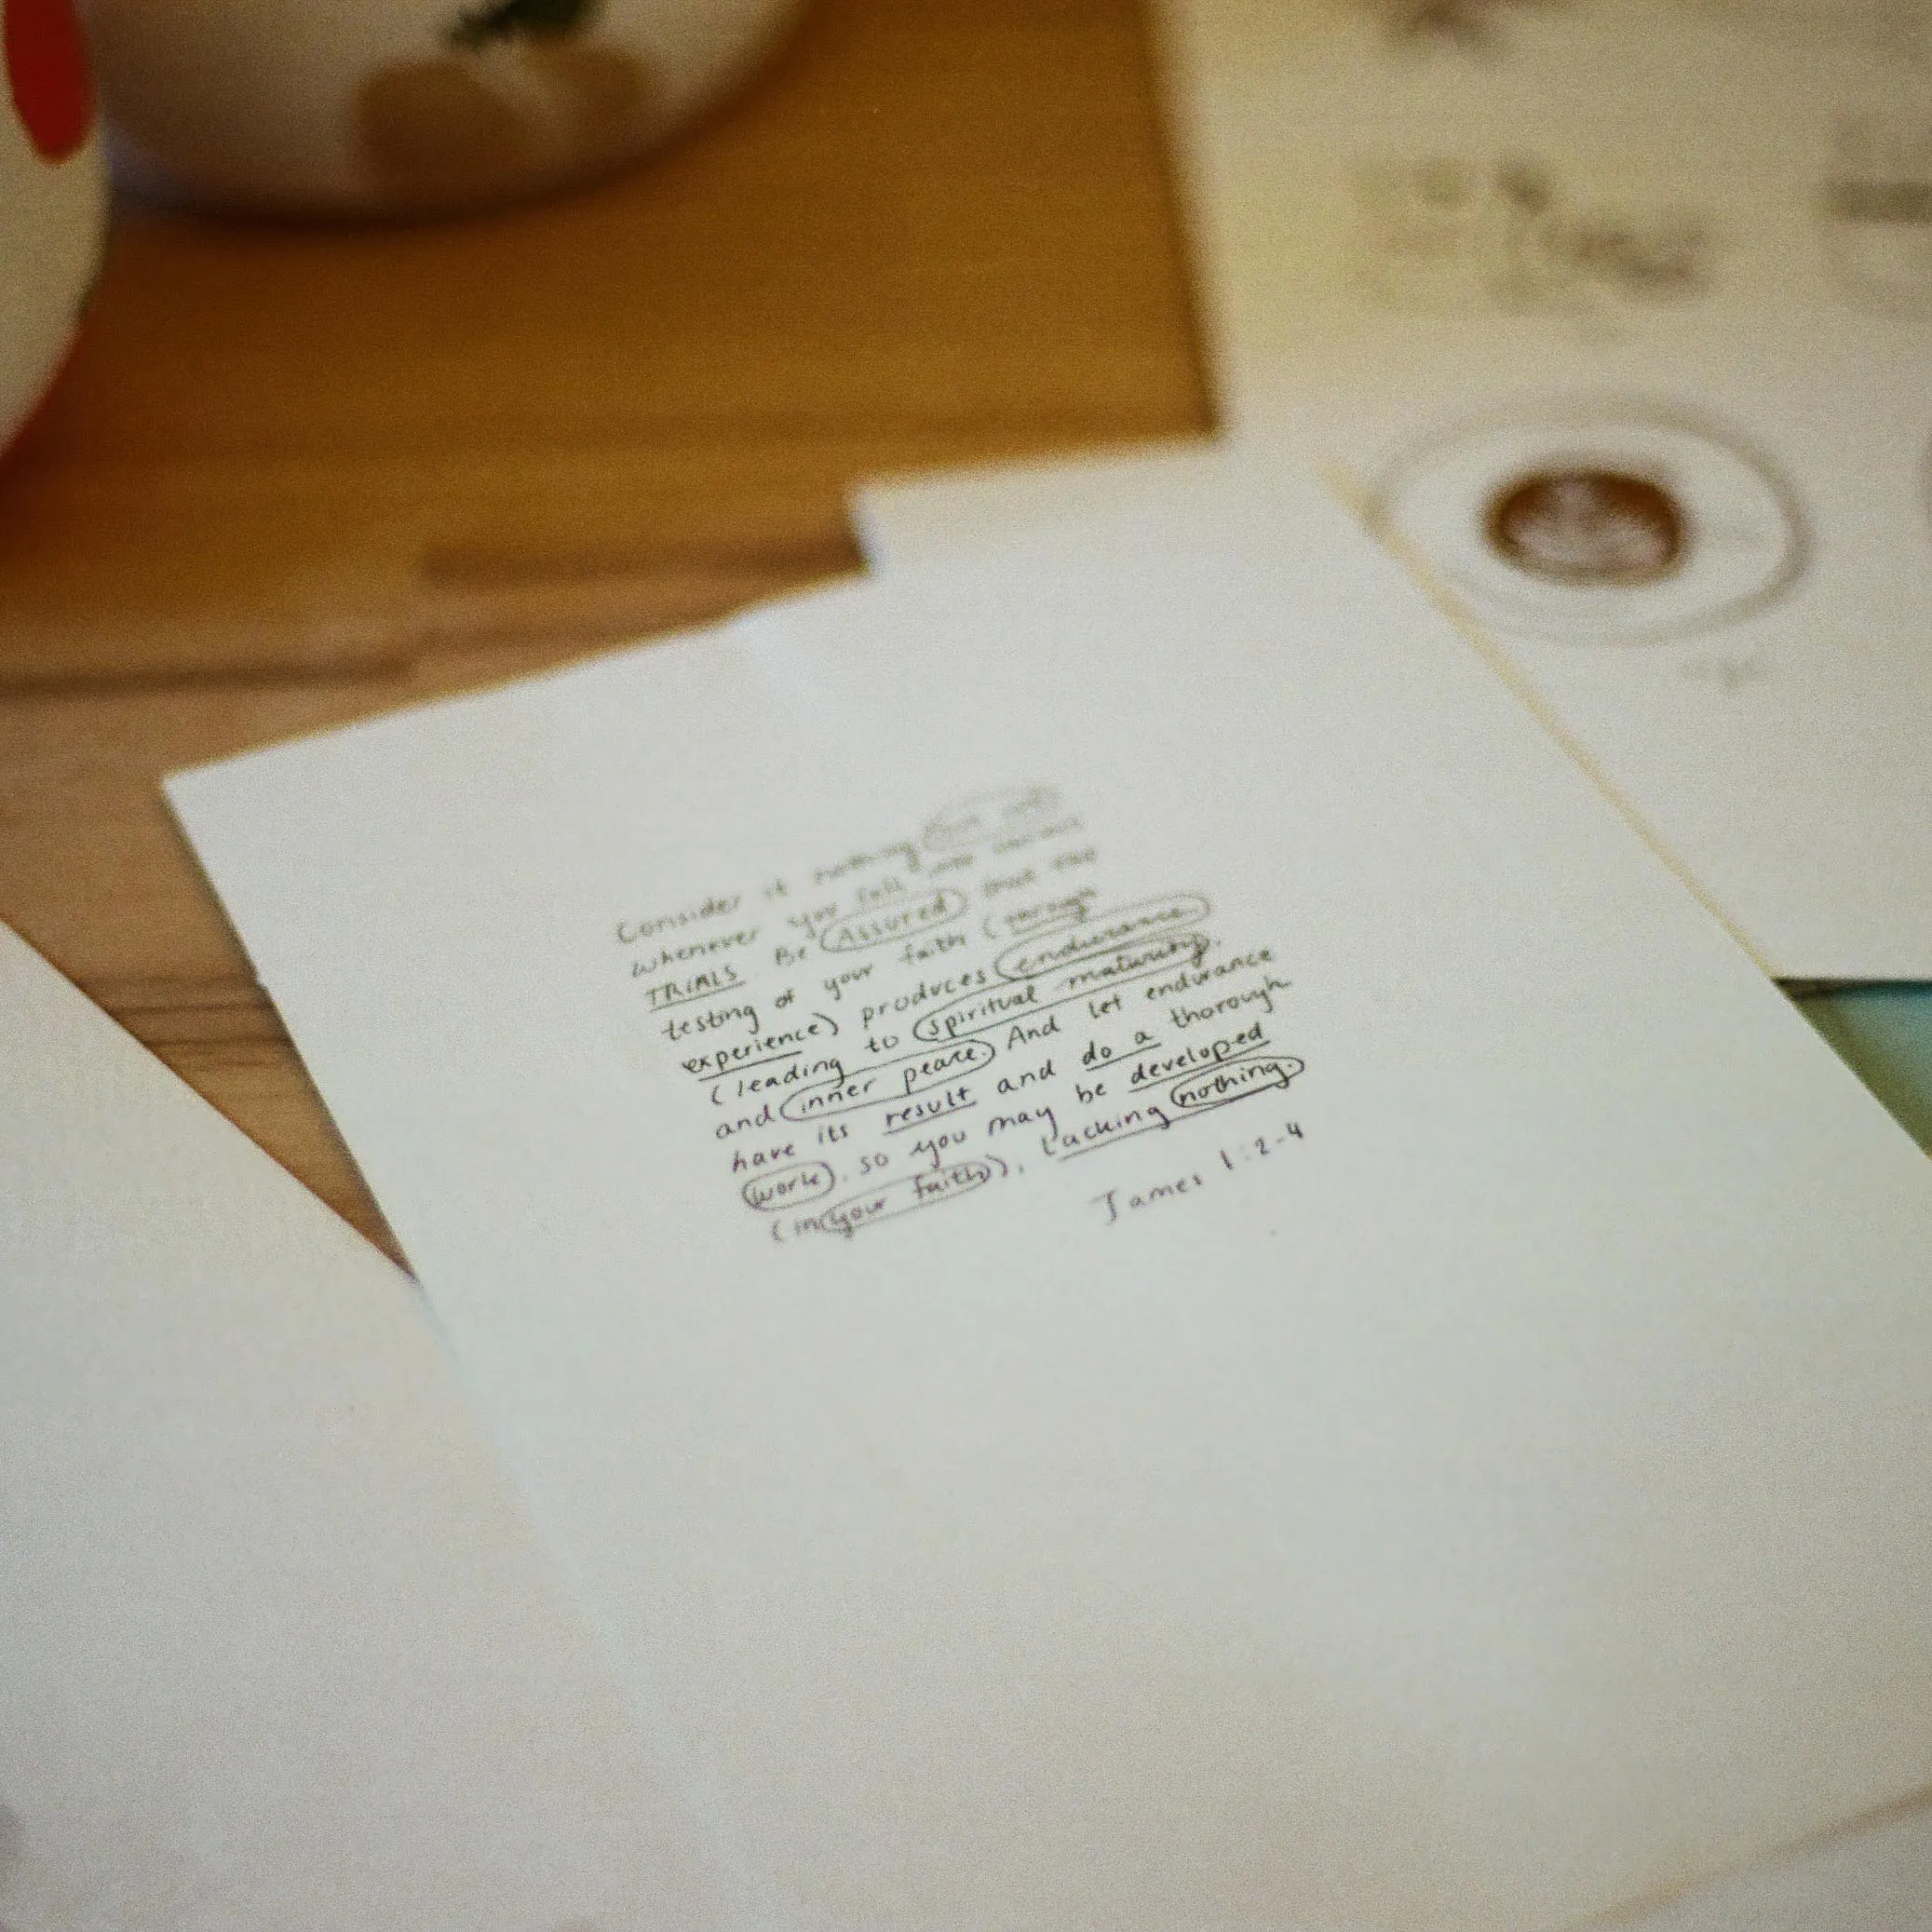 Consider it nothing but joy
whenever you fall into various
TRIALS Be Assured that the
testing of your faith (through
experience) produces endurance
(leading to spiritual maturity.
and inner peace. And let endurance
have its result and do a thorough
work, so you may be developed
(in your faith), Lacking nothing.
James 1:2-4